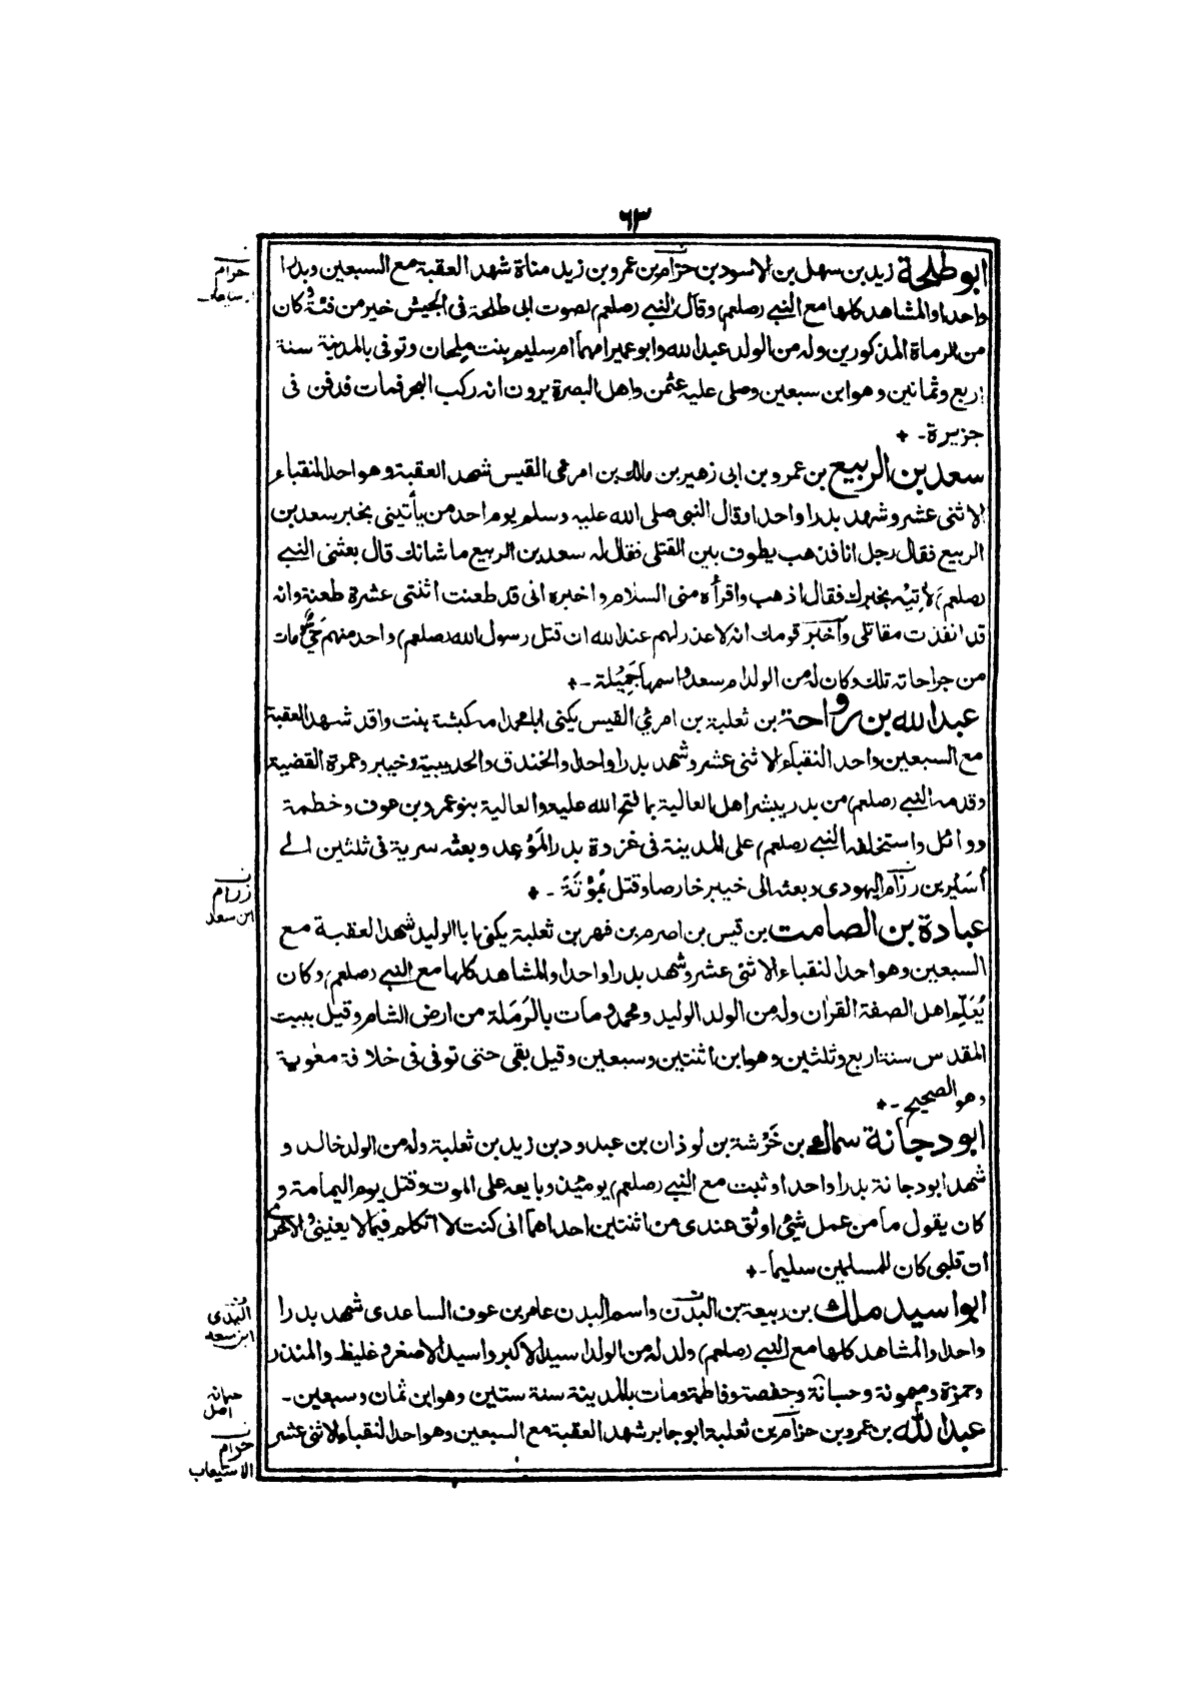 ٦٣
ابو طلحة زيد بن سهل بن الاسود بن حزام بن عمرو بن زيد مناة شهد العقبة مع السبعين وبدرا
واحدا والمشاهد كلها مع النبي (صلعم) وقال النبي (صلعم) لصوت ابى طلحة فى الجيش خير من فئة وكان
من الرماة المذكورين وله من الولد عبد الله وابو عمير امهما ام سليم بنت ملحان وتوفى بالمدينة سنة
اربع وثمانين وهو ابن سبعين وصلى عليه عثمن واهل البصرة يرون انه ركب البحر فمات فدفن فى
جزيرة -
سعد بن الربيع بن عمرو بن ابى زهير بن مالك بن امرئ القيس شهد العقبة وهو احد النقباء
الاثنى عشر وشهد بدرا واحدا وقال النبى صلى الله عليه وسلم يوم احد من يأتينى بخبر سعد بن
الربيع فقال رجل انا فذهب يطوف بين القتلى فقال له سعد بن الربيع ما شانك قال بعثنى النبي
(صلعم) لاتيه بخبرك فقال اذهب واقرأه منى السلام واخبره انى قد طعنت اثنتى عشرة طعنة وانه
قد انفذت مقاتلى وآخبر قومك انه لا عذر لهم عند الله ان قتل رسول الله (صلعم) واحد منهم حي ومات
من جراحاته تلك وكان له من الولد ام سعد واسمها جميلة -
عبد الله بن رواحة بن ثعلبة بن امرئ القيس يكنى ابا محمد امه كبشة بنت واقد شهد العقبة
مع السبعين واحد النقباء الاثنى عشر وشهد بدرا واحدا والخندق والحديبية وخيبر وعمرة القضية
وقدمه النبي (صلعم) من بدر يبشر اهل العالية بما فتح الله عليه والعالية بنو عمرو بن عوف وخطمة
ووائل واستخلفه النبي (صلعم) على المدينة فى غزوة بدر الموعد وبعثه سرية فى ثلثين الى
أسير بن رزام اليهودى وبعثه الى خيبر خارصا وقتل بمؤتة -
عبادة بن الصامت بن قيس بن اصرم بن فهر بن ثعلبة يكنى ابا الوليد شهد العقبة مع
السبعين وهو احد النقباء الاثنى عشر وشهد بدرا واحدا والمشاهد كلها مع النبي (صلعم) وكان
يُعَلّم اهل الصفة القران وله من الولد الوليد ومحمد ومات بالرَملة من ارض الشام وقيل ببيت
المقدس سنة اربع وثلثين وهو ابن اثنتين وسبعين وقيل بقى حتى توفى فى خلافة معوية
وهو الصحيح -
ابو دجانة سماك بن خَرَشة بن لوذان بن عبد ود بن زيد بن ثعلبة وله من الولد خالد و
شهد ابو دجانة بدرا واحدا وثبت مع النبي (صلعم) يومئذ وبايعه على الموت وقتل يوم اليمامة و
كان يقول ما من عمل شئ اوثق عندى من اثنتين احداهما انى كنت لا اتكلم فيما لا يعنينى والاخرى
ان قلبى كان للمسلمين سليما -
ابو اسيد ملك بن ربيعة بن البدن واسم البدن عامر بن عوف الساعدى شهد بدرا
واحدا والمشاهد كلها مع النبي (صلعم) ولد له من الولد اسيد الاكبر واسيد الاصغر وغليظ والمنذر
وحمزة وميمونة وحبانة وحفصة وفاطمة ومات بالمدينة سنة ستين وهو ابن ثمان وسبعين -
عبد الله بن عمرو بن حزام بن ثعلبة ابو جابر شهد العقبة مع السبعين وهو احد النقباء الاثنى عشر
ن
حرام
ن
زرام
ابن سعد
ن
البدى
ابن سعد
حبانة
اصل
ن
حرام
الاستيعاب